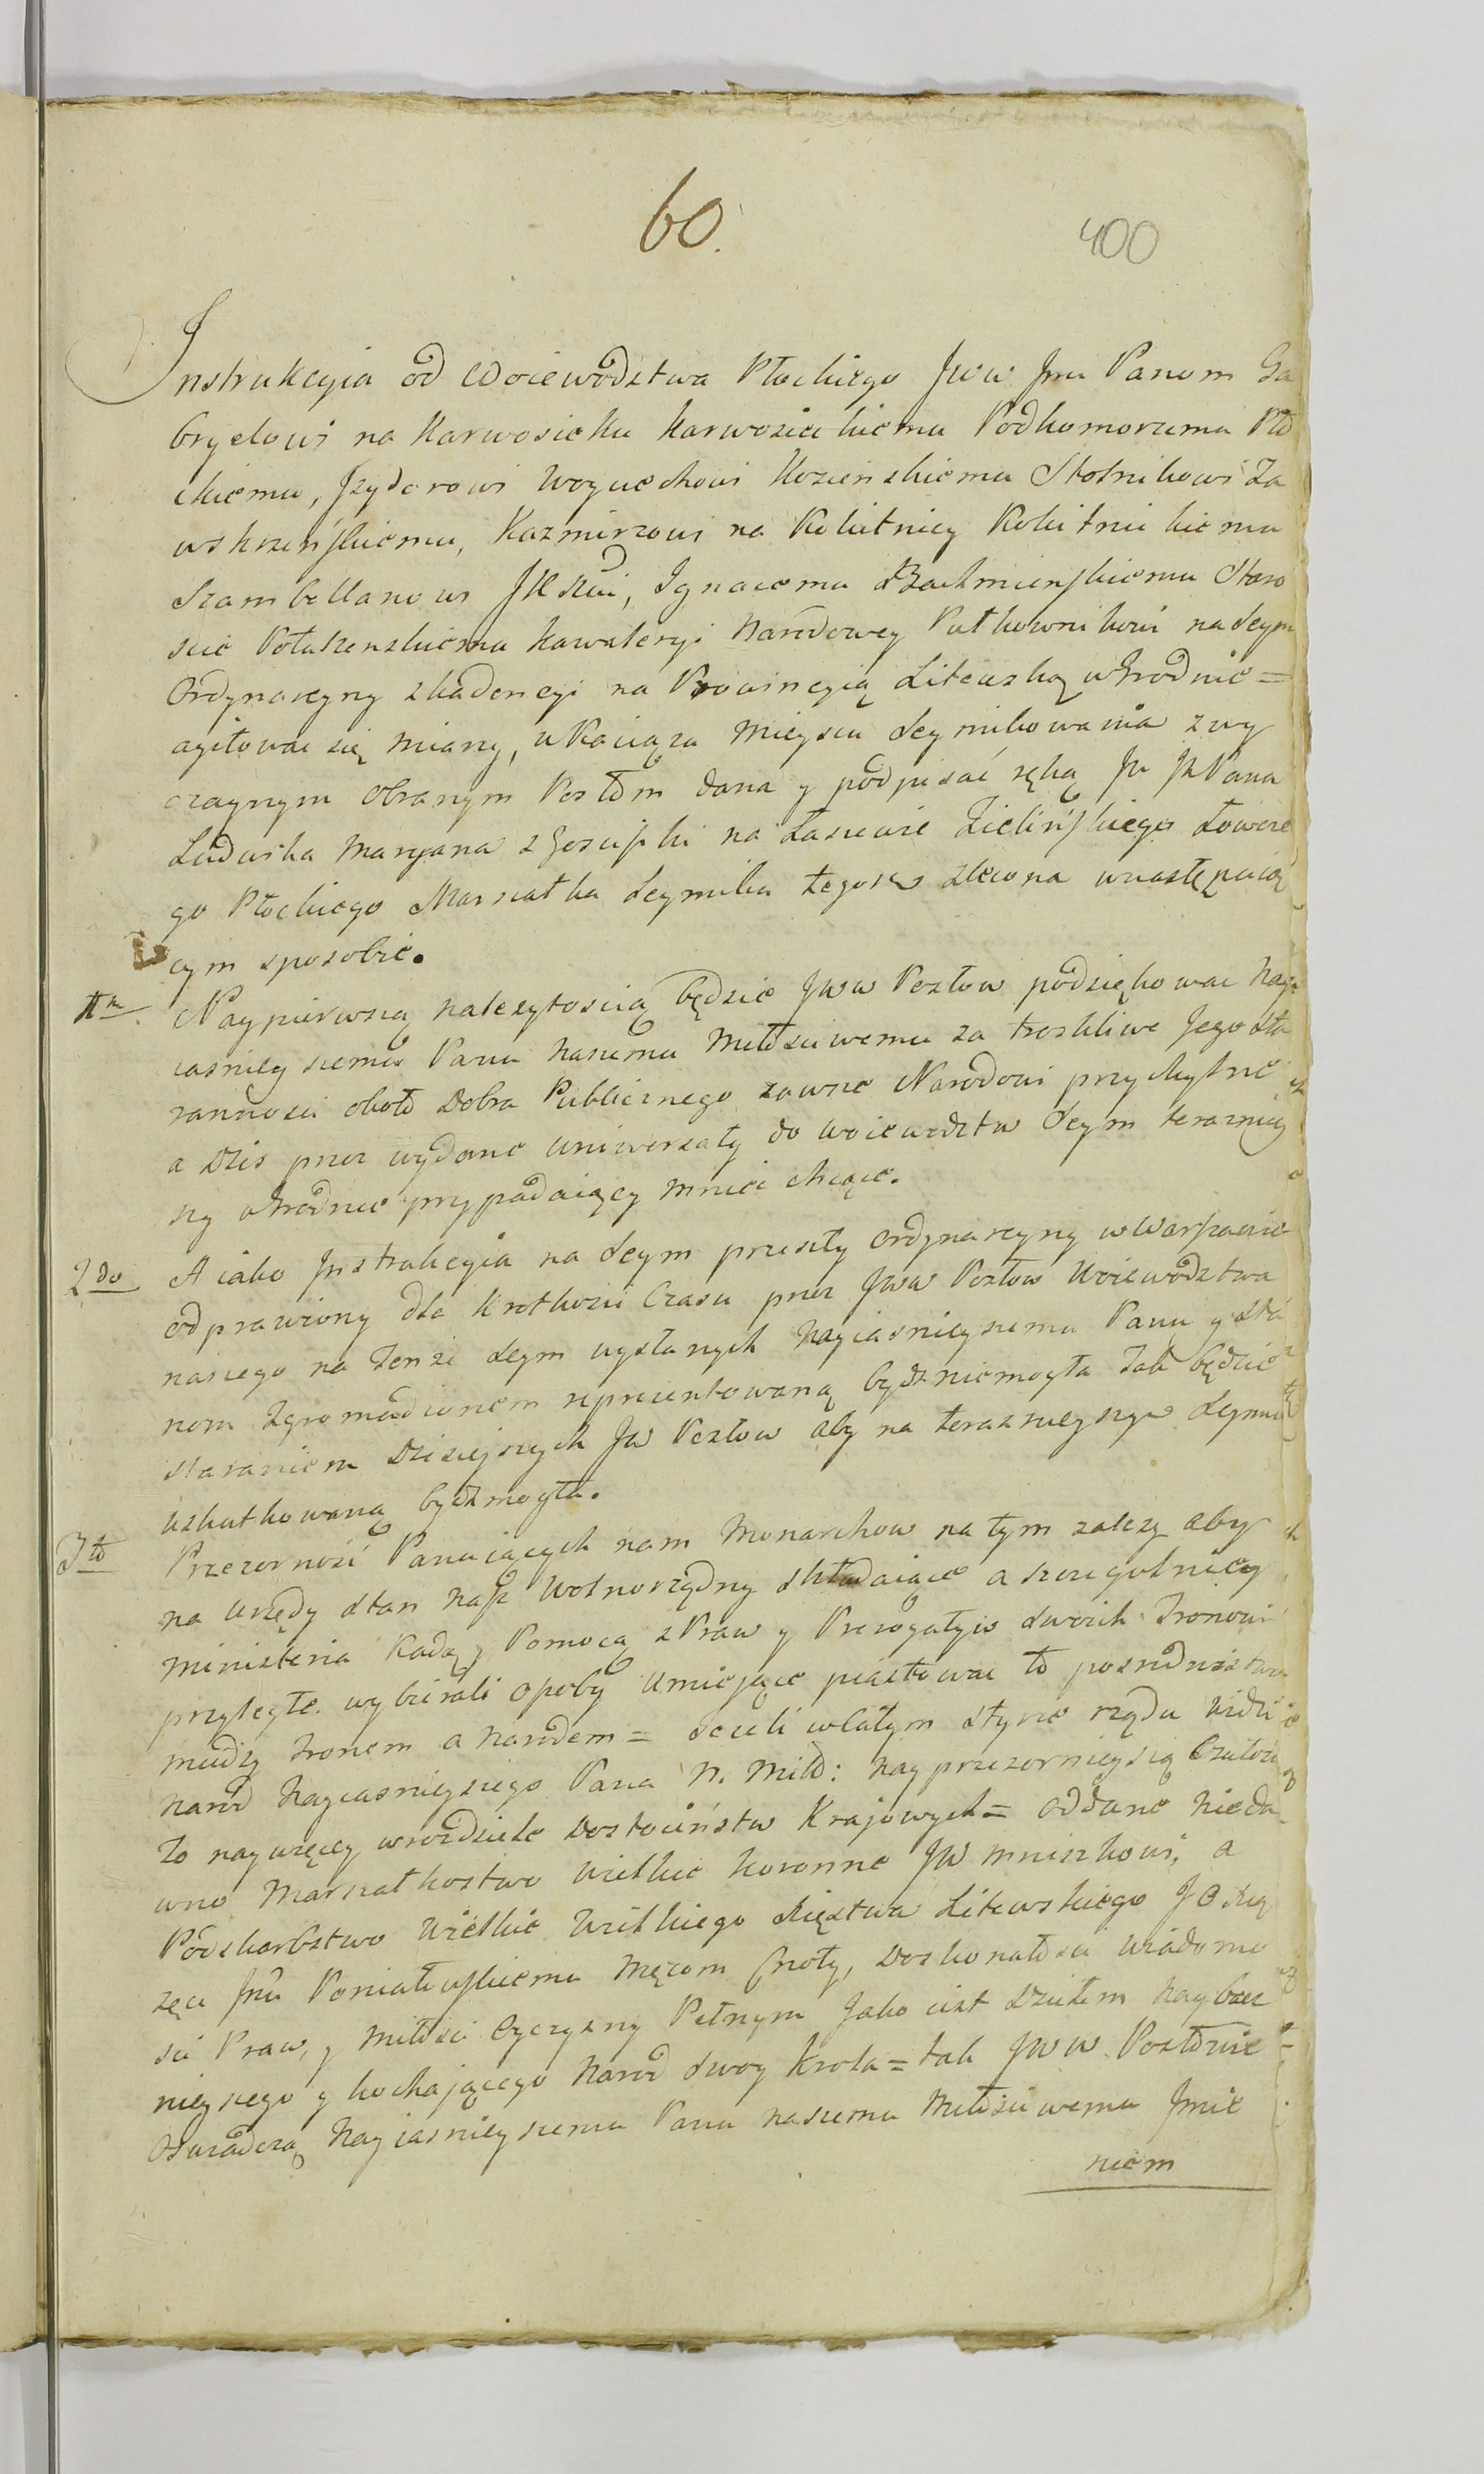 60.
400
Instrukcyia od Woiewodztwa Płockiego JWW Jmc Panom Ga
bryelowi na Karwosieku Karwosieckiemu Podkomorzemu Pło
ckiemu, Jzydorowi Woyciechowi Stolnikowi Za
wskrzeńskiemu, Kazmirzowi na
Szambellanowi JKMci, Ignacemu Staro
scie Kawaleryi Narodowey Pułkownikowi na Seym
Ordynaryiny z kadencyi na Prowincyią Litewską w Grodnie =
agitować się miany, w Raciążu mieyscu Seymikowania zwy
czaynym obranym Posłom dana y podpisać ręką JW JP Pana
Ludwika Maryana z na Zielińskiego Łowcze
go Płockiego Marszałka Seymiku tegosz zlecona wnastępuią
cym sposobie.
1mo Naypierwszą nalezytoscią będzie JWW Posłow podziękowac Nay
iasnieyszemu Panu naszemu Miłosciwemu za troskliwe Jego sta
rannosci około Dobra Publicznego zawsze Narodowi przychylne
a Dzis przez wydane uniwersały do Woiewodztw Seym terazniey
szy w Grodnie przypadaiący mnieć chcące.
2do A iako Jnstrukcyia na Seym przeszły ordynaryiny w Warszawie
odprawiony dla krotkosci Czasu przez JWW Posłow Woiewodztwa
naszego na tenze Seym wysłanych Nayiasnieyszemu Panu y Sta
nom Zgromadzonem reprezentowaną bydz niemogła Tak będzie
staraniem Dzisiejszych JW Posłow aby na teraznieyszym Seymie
uskutkowaną bydz mogła.
3tio Przezornosć Panuiących nam Monarchow na tym zalezy aby
na urzędy stan nasz wolnorządny składaiące a szczegulniey
ministeria Radą y Pomocą z Praw y Prerogatyw swoich Tronowi
przyległe wybierali osoby umiejące piastować to posrednictwo
miedzy tronem a narodem = Jezeli w całym styrze rządu widzi
narod Nayiasnieyszego Pana N. Miło: nayprzezornieyszą
to naywięcey w rozdziele Dostoieństw Krajowych = oddane nieda
wno Marszałkostwo wielkie koronne JW Mniszkowi, a
Podskarbstwo Wielkie Wielkiego Xięstwa Litewskiego JO Xią
zęciu Jmci Poniatowskiemu męzom cnoty, Doskonałosci wiadomo
sci Praw, y miłosci Oyczyzny Pełnym Jako iest Dziełem naybacz
nieyszego y kochającego Narod swoy Krola = tak JWW Posłowie
Oswiadczą Nayiasnieyszemu Panu naszemu Miłosciwemu Jmie
niem